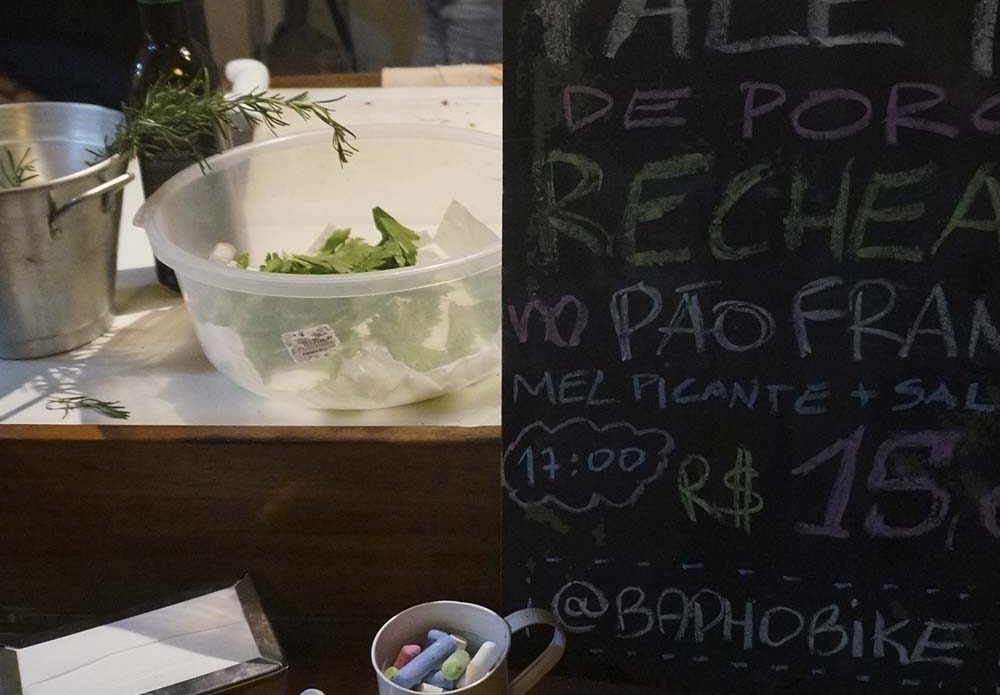 DE PORC
RECHEA
NO PÃO FRAN
MEL PICANTE + SAL
17:00
R$ 15,
@BAPHOBiKE